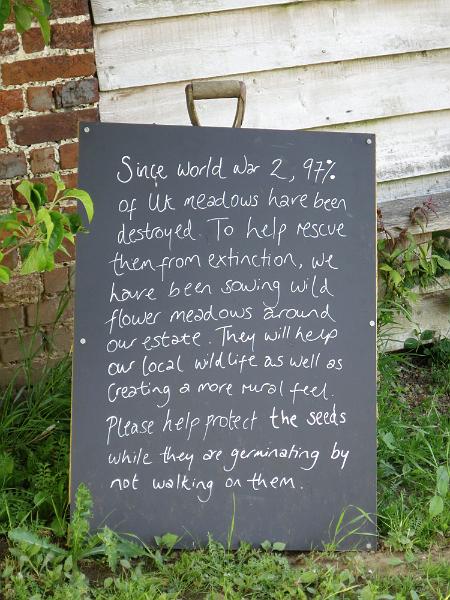 Since World War 2, 97%
of UK meadows have been
destroyed. To help rescue
them from extinction, we
have been sowing wild
flower meadows around
our estate. They will help
our local wildlife as well as
creating a more rural feel.
Please help protect the seeds
while they are germinating by
not walking on them.